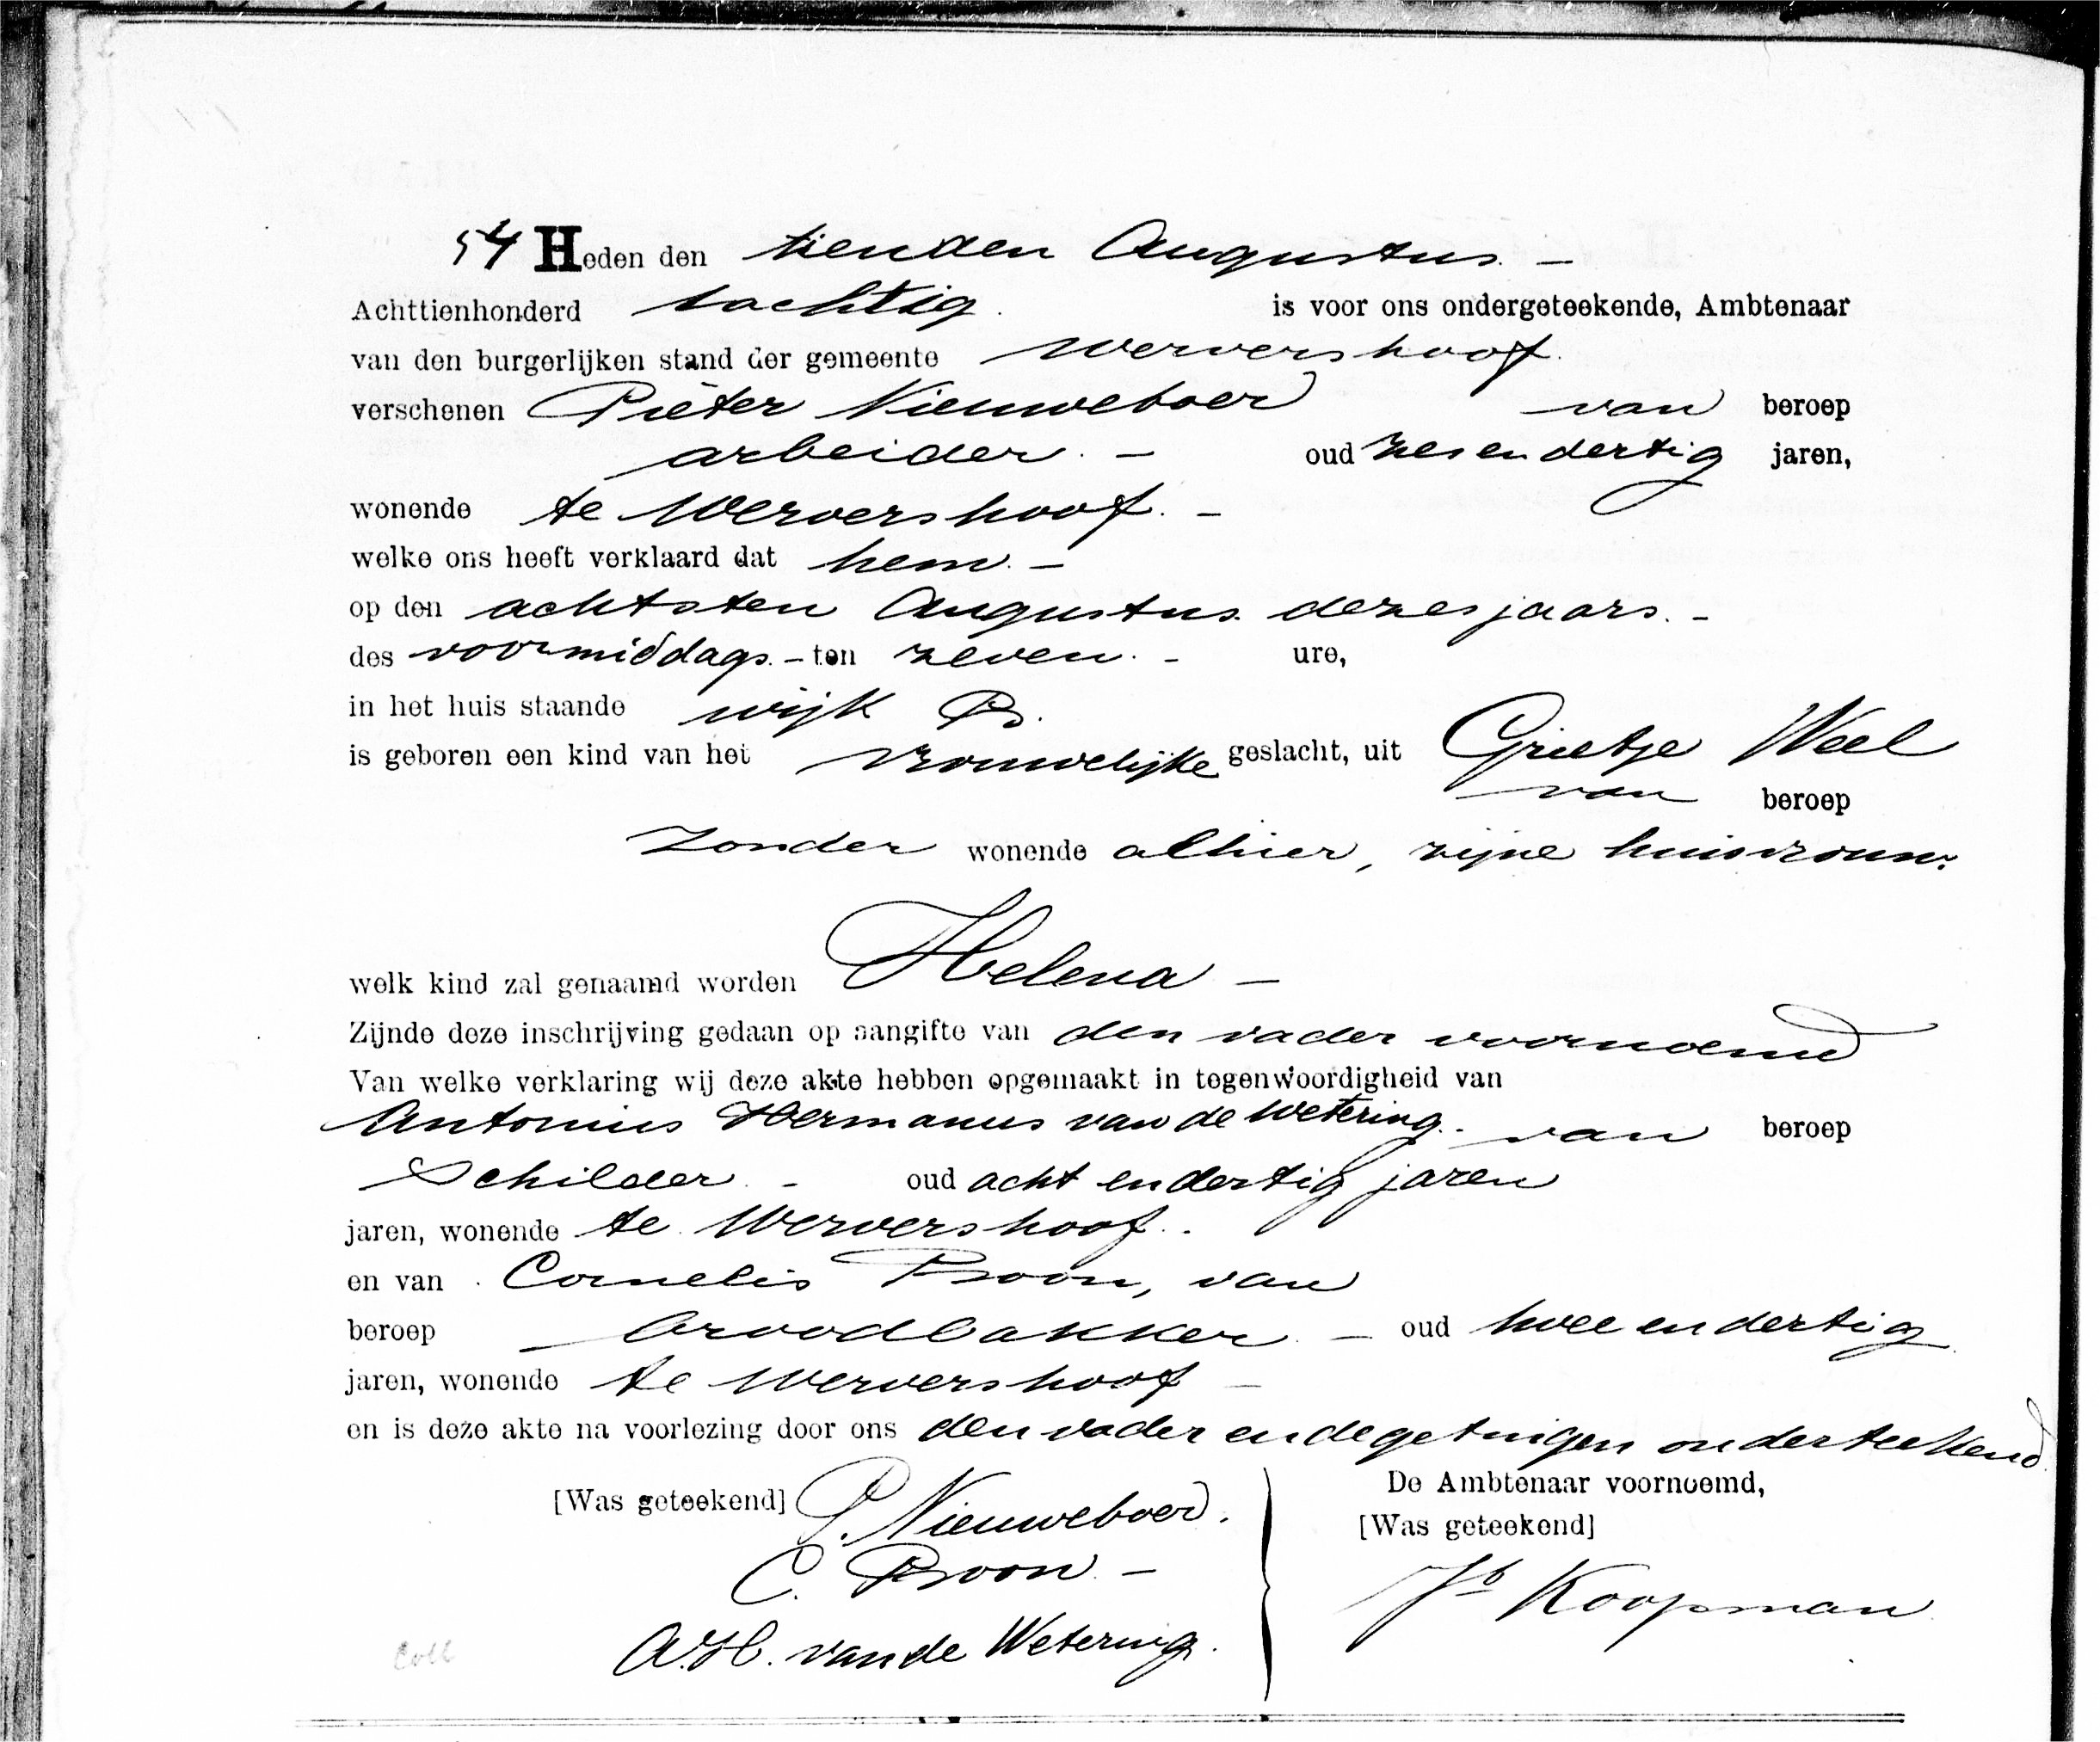 54 Heden den tienden Augustus. -
Achttienhonderd tachtig. is voor ons ondergeteekende, Ambtenaar
van den burgerlijken stand der gemeente Wervershoof.
verschenen Pieter Nieuweboer van beroep
arbeider. - oud zes en dertig jaren,
wonende te Wervershoof. -
welke ons heeft verklaard dat hem. -
op den achtsten Augustus dezes jaars. -
des voormiddags. - ten zeven. - ure,
in het huis staande wijk B.
is geboren een kind van het vrouwelijke geslacht, uit Grietje Weel
van beroep
Zonder wonende alhier, zijne huisvrouw.
welk kind zal genaamd worden Helena -
Zijnde deze inschrijving gedaan op aangifte van den vader voornoemd
Van welke verklaring wij deze akte hebben opgemaakt in tegenwoordigheid van
Antonius Hermanus van de Wetering. van beroep
Schilder. - oud acht en dertig jaren
jaren, wonende te Wervershoof.
en van Cornelis Broon, van
beroep broodbakker - oud twee en dertig
jaren, wonende te Wervershoof -
en is deze akte na voorlezing door ons den vader en de getuigen onderteekend.
[Was geteekend] P. Nieuweboer.
C. Broon. -
A.H. van de Wetering.
De Ambtenaar voornoemd,
[Was geteekend]
Jb Koopman
Coll